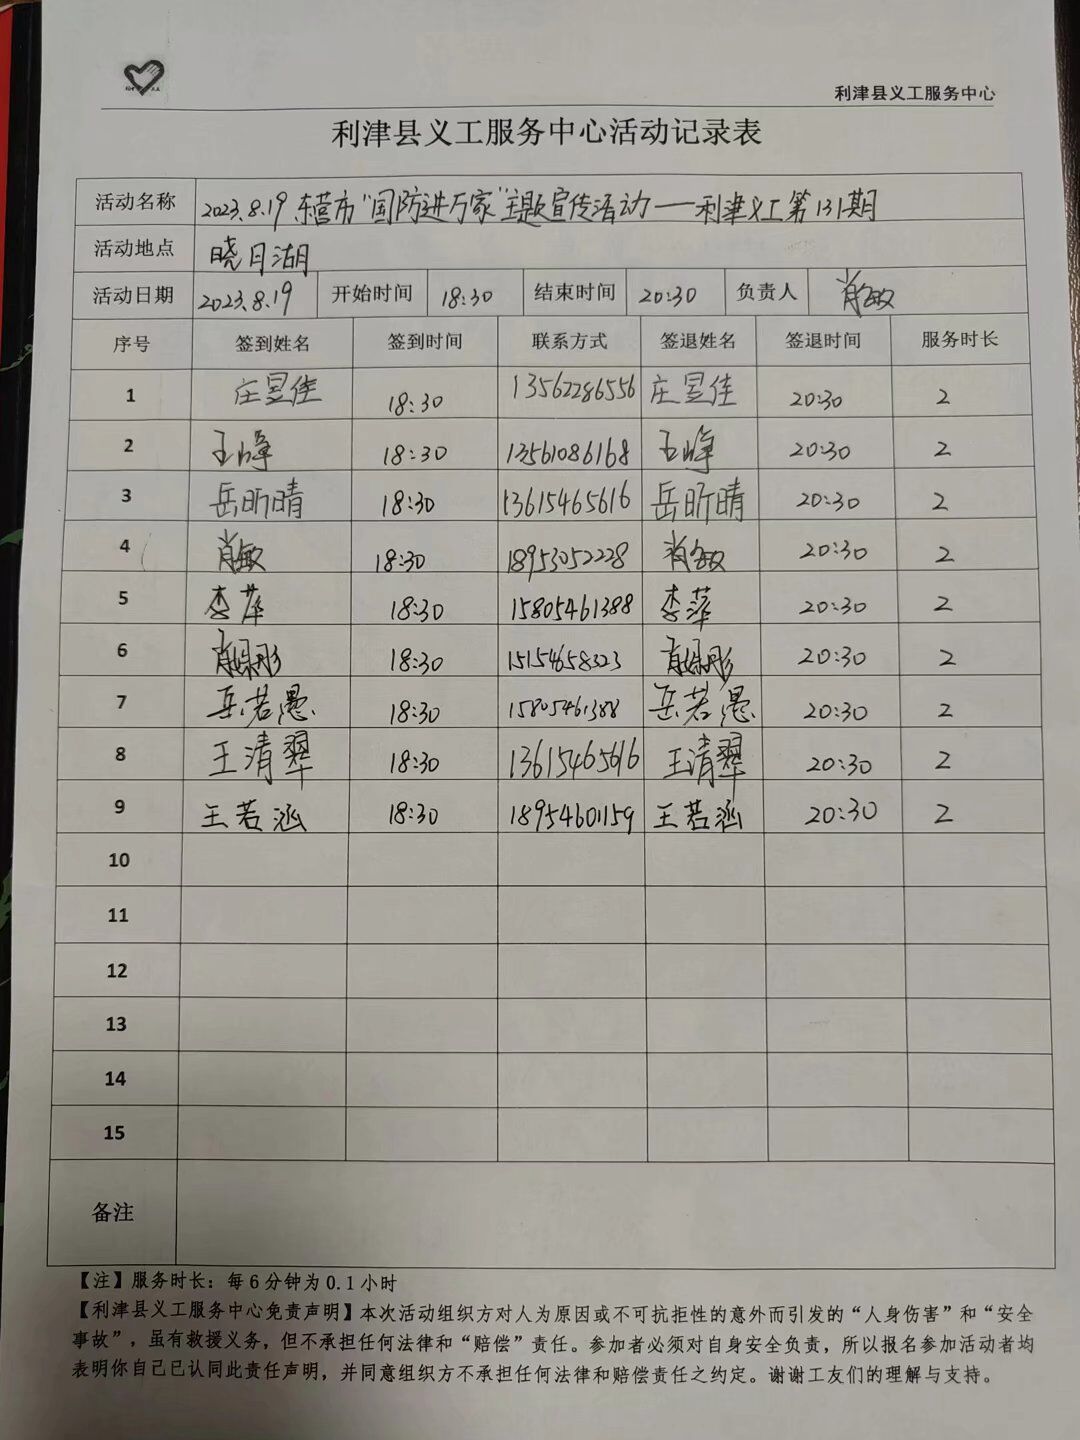 利津县义工服务中心
利津县义工服务中心活动记录表
活动名称 2023.8.19 东营市"国防进万家"主题宣传活动——利津义工第131期
活动地点 晓月湖
活动日期 2023.8.19 开始时间 18:30 结束时间 20:30 负责人 肖敏
序号 签到姓名 签到时间 联系方式 签退姓名 签退时间 服务时长
1 庄昱佳 18:30 13562286556 庄昱佳 20:30 2
2 王峥 18:30 13561086168 王峥 20:30 2
3 岳昕晴 18:30 13615465616 岳昕晴 20:30 2
4 肖敏 18:30 18953052228 肖敏 20:30 2
5 李萍 18:30 15805461388 李萍 20:30 2
6 18:30 15154658323 20:30 2
7 岳若愚 18:30 15805461388 岳若愚 20:30 2
8 王清翠 18:30 13615465616 王清翠 20:30 2
9 王若涵 18:30 18954601159 王若涵 20:30 2
10
11
12
13
14
15
备注
【注】服务时长：每6分钟为0.1小时
【利津县义工服务中心免责声明】本次活动组织方对人为原因或不可抗拒性的意外而引发的“人身伤害”和“安全
事故”，虽有救援义务，但不承担任何法律和“赔偿”责任。参加者必须对自身安全负责，所以报名参加活动者均
表明你自己已认同此责任声明，并同意组织方不承担任何法律和赔偿责任之约定。谢谢工友们的理解与支持。